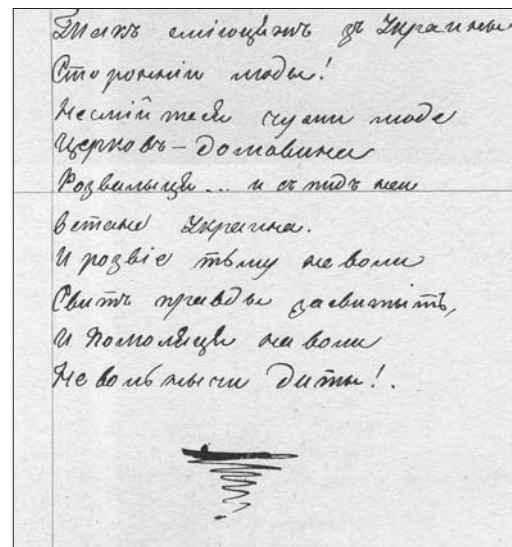 Такъ смiюцижъ зъ Украины
Стороннiи люды!
Несмiйтеся чужи люде
Церковъ-домовина
Розвалыця... и съ пидъ неи
Встане Украина.
И розвiе тьму неволи
Свитъ правды засвитыть,
И помоляця на воли
Невольнычи диты!.